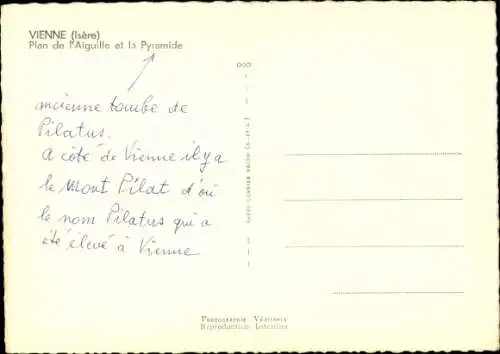 VIENNE (Isère)
Plan de l'Aiguille et la Pyramide
ancienne tombe de
Pilatus.
A côté de Vienne il y a
le Mont Pilat d'où
le nom Pilatus qui a
été élevé à Vienne
Reproduction Interdite